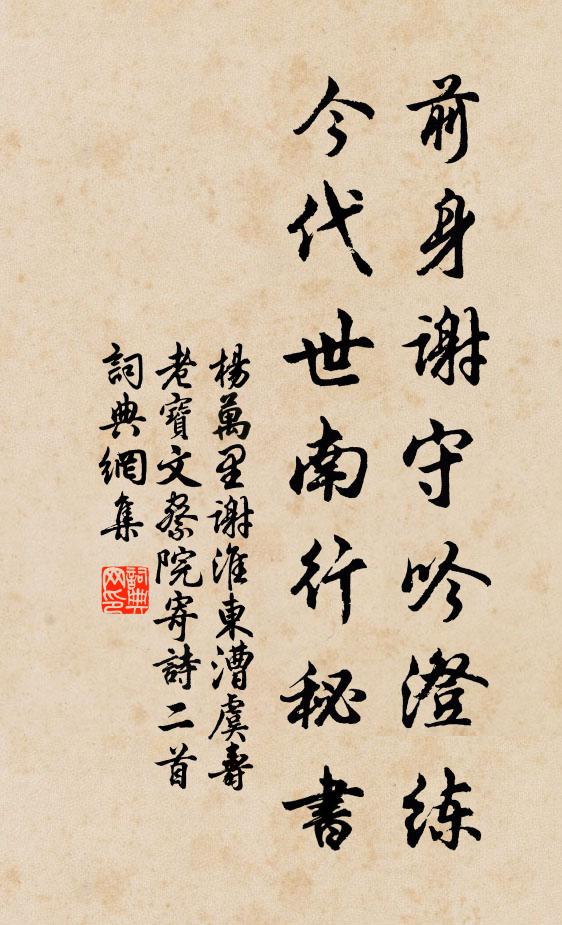 前身謝守吟澄练
今代世南行秘書
楊萬里謝淮東漕虞壽
老寶文察院寄詩二首
詞典網集
詞典网印